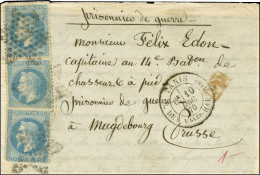 prisonnier de guerre
Monsieur Félix Edon
capitaine au 14e Baton de
chasseurs à pied
prisonnier de guerre
à Magdebourg
Prusse
PARIS
10
DEC
70